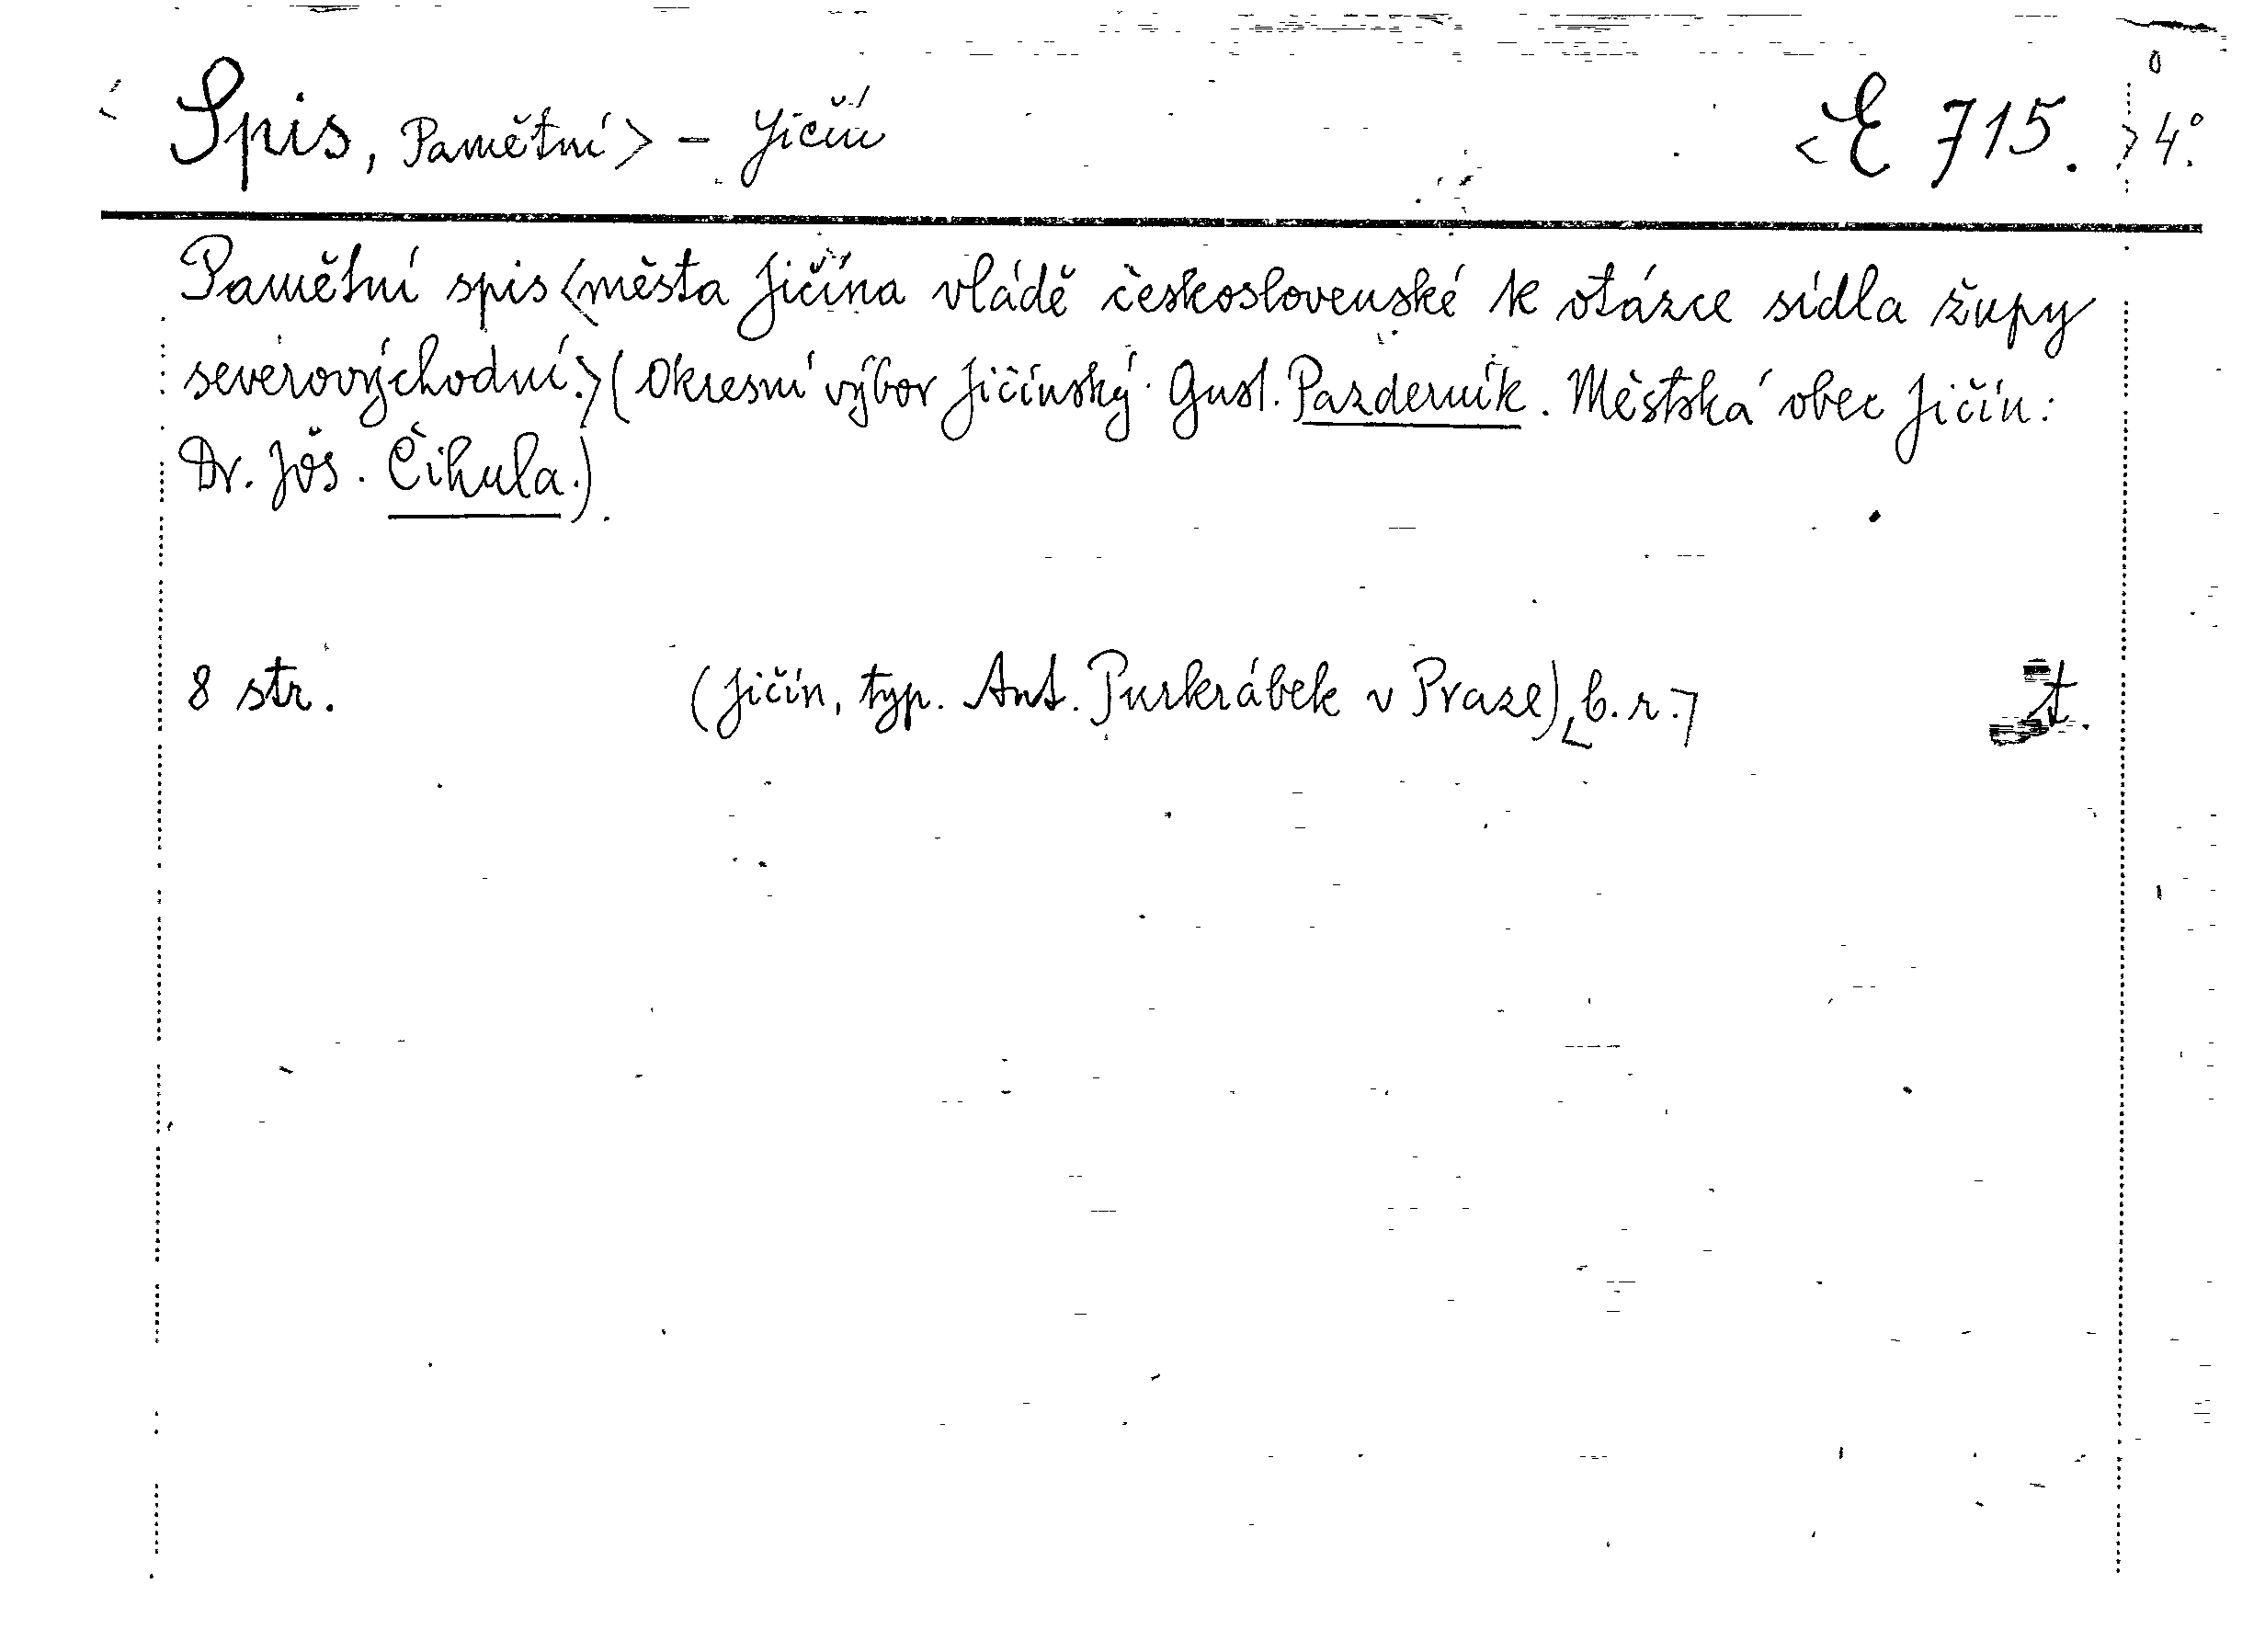 < Spis, Pamětní > - Jičín <E 715. > 4°.
Pamětní spis <města Jičína vládě československé k otázce sídla župy
severovýchodní.> (Okresní výbor Jičínský. Gust. Pazderník. Městská obec Jičín:
Dr. Jos. Čihula.).
8 str. (Jičín, typ. Ant. Purkrábek v Praze) [b. r.] t.